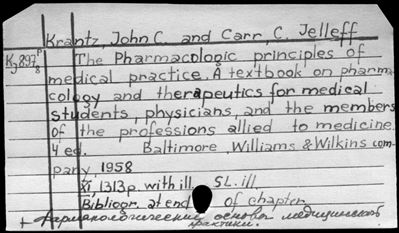 Krantz, John C. and Carr, C. Jelleff
The Pharmacologic principles of
medical practice. A textbook on pharma-
cology and therapeutics for medical
students, physicians, and the members
of the professions allied to medicine.
4 ed. Baltimore, Williams & Wilkins com-
pany, 1958
XI, 1313 p. with ill. SL. ill
Bibliogr. at end of chapter
+ Фармакологические основы медицинской
практики.